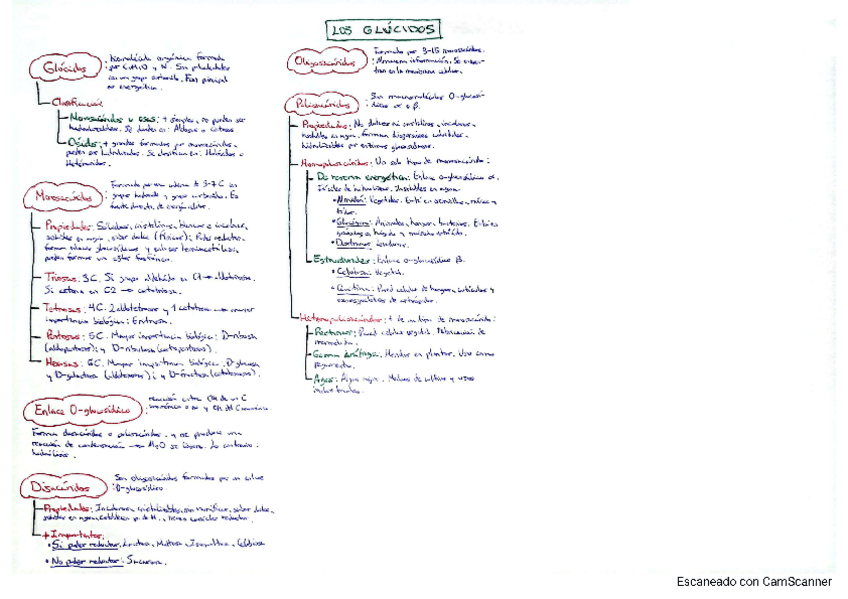 LOS GLÚCIDOS
Glúcidos
: Biomolécula orgánica formada
por C, H, O y N. Son polialcoholes
con un grupo carbonilo. Fns principal
es energética.
Clasificación
Monosacáridos u osas: + simples, no pueden ser
hidrolizables. Se dividen en: Aldosas o cetosas
Ósidos: + grandes formados por monosacáridos,
pueden ser hidrolizados. Se clasifican en: Holósidos o
Heterósidos.
Monosacáridos
Formado por una cadena de 3-7 C con
grupo hidroxilo y grupo carbonilo. Es
fuente directa de energía celular.
Propiedades: Sólidos, cristalinos, blancos o incoloros,
solubles en agua, sabor dulce; Poder reductor,
forman enlaces glucosídicos y enlaces hemiacetálicos,
pueden formar un éster fosfórico.
Triosas: 3C. Si grupo aldehído en C1 → aldotriosa.
Si cetona en C2 → cetotriosa.
Tetrosas: 4C. 2 aldotetrosas y 1 cetotetrosa → mayor
importancia biológica: Eritrosa.
Pentosas: 5C. Mayor importancia biológica: D-ribosa
(aldopentosas); y D-ribulosa (cetopentosas).
Hexosas: 6C. Mayor importancia biológica, D-glucosa
y D-galactosa (aldohexosas); y D-fructosa (cetohexosas).
Enlace O-glucosídico
: reacción entre OH de un C
anomérico o no y OH del C anomérico
Forma disacáridos o polisacáridos, y se produce una
reacción de condensación → H2O se libera. Lo contrario:
hidrólisis.
Disacáridos
Son oligosacáridos formados por un enlace
: O-glucosídico
Propiedades: Incoloros, cristalizables, sabor dulce,
solubles en agua, carácter reductor.
+ Importantes:
• Si poder reductor: Lactosa, Maltosa, Isomaltosa, Celobiosa
• No poder reductor: Sacarosa.
Oligosacáridos
Formado por 3-15 monosacáridos.
: Almacena información. Se encuentran
en la membrana celular.
Polisacáridos
Son macromoléculas O-glucosídicas
α o β.
Propiedades: No dulces ni cristalinos, incoloros,
insolubles en agua, forman dispersiones coloidales,
hidrolizables por enzimas
Homopolisacáridos: Un solo tipo de monosacárido:
De reserva energética: Enlace O-glucosídico α.
Fáciles de hidrolizar. Insolubles en agua.
• Almidón: Vegetales. Está en semillas, raíces y
tallos.
• Glucógeno: Animales, hongos, bacterias. Está en
hígado y músculo estriado.
• Dextranos: Levaduras.
Estructurales: Enlace O-glucosídico β.
• Celulosa: Vegetal.
• Quitina: Pared celular de hongos, cutículas y
exoesqueletos de artrópodos.
Heteropolisacáridos: + de un tipo de monosacárido:
Pectinas: Pared celular vegetal. Fabricación de
mermelada.
Goma arábiga: Heridas en plantas. Uso como
pegamento.
Agar: Algas rojas. Medios de cultivo y usos
industriales.
Escaneado con CamScanner